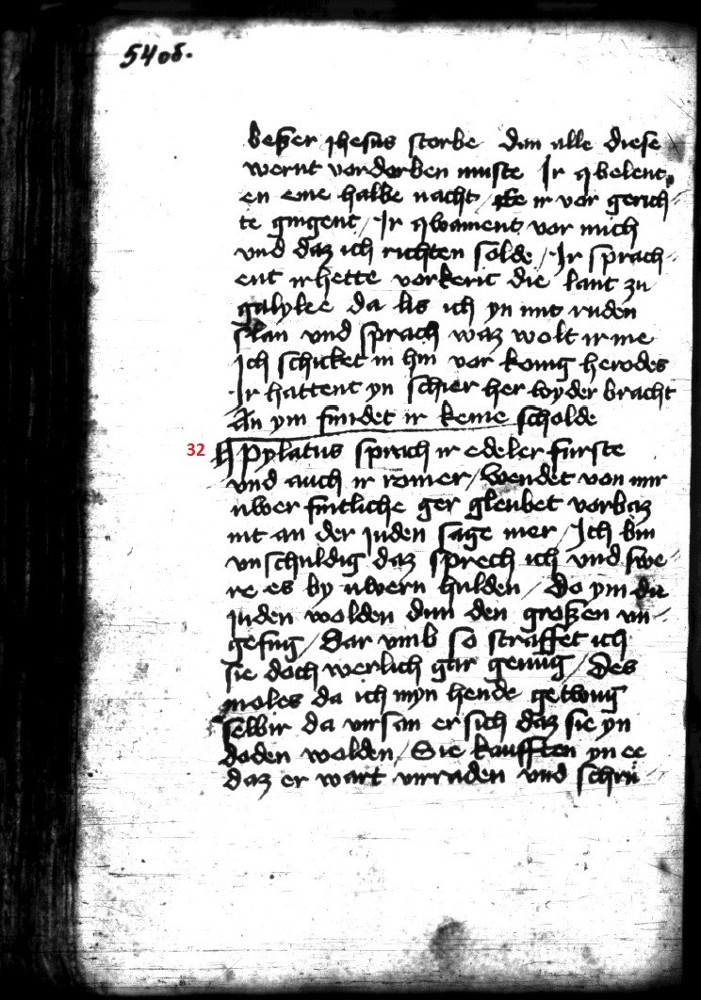 54 об.
beßer jhesus storbe dan alle diese
wernt vordorben muste Ir qbelent
en eine halbe nacht / ee ir vor gerich
te gingent / Ir qwament vor mich
vnd daz ich richten solde / Ir sprach
ent ir hette vorkeric die lant zu
galylee da lis ich yn mit ruden
slan vnd sprach waz wolt ir me
Ich schicket in hin vor konig herodes
Ir hattent yn schier her wyder bracht
An ym findet ir keine scholde
32 Pylatus sprach ir edeler furste
vnd auch ir romer / wendet von mir
uwer fintliche ger gleubet vorbaz
nit an der juden sage mer / Ich bin
vnschuldig daz sprech ich vnd swe
re es by uwern hulden / Do ym die
juden wolden dun den großen vn
gefug / Dar vmb so straffet ich
sie doch werlich gar genug / Des
moles da ich myn hende getwug
selbir da virsan er sich daz sie yn
doden wolden / Sie kaufften yn ee
daz er wart virraden vnd schru